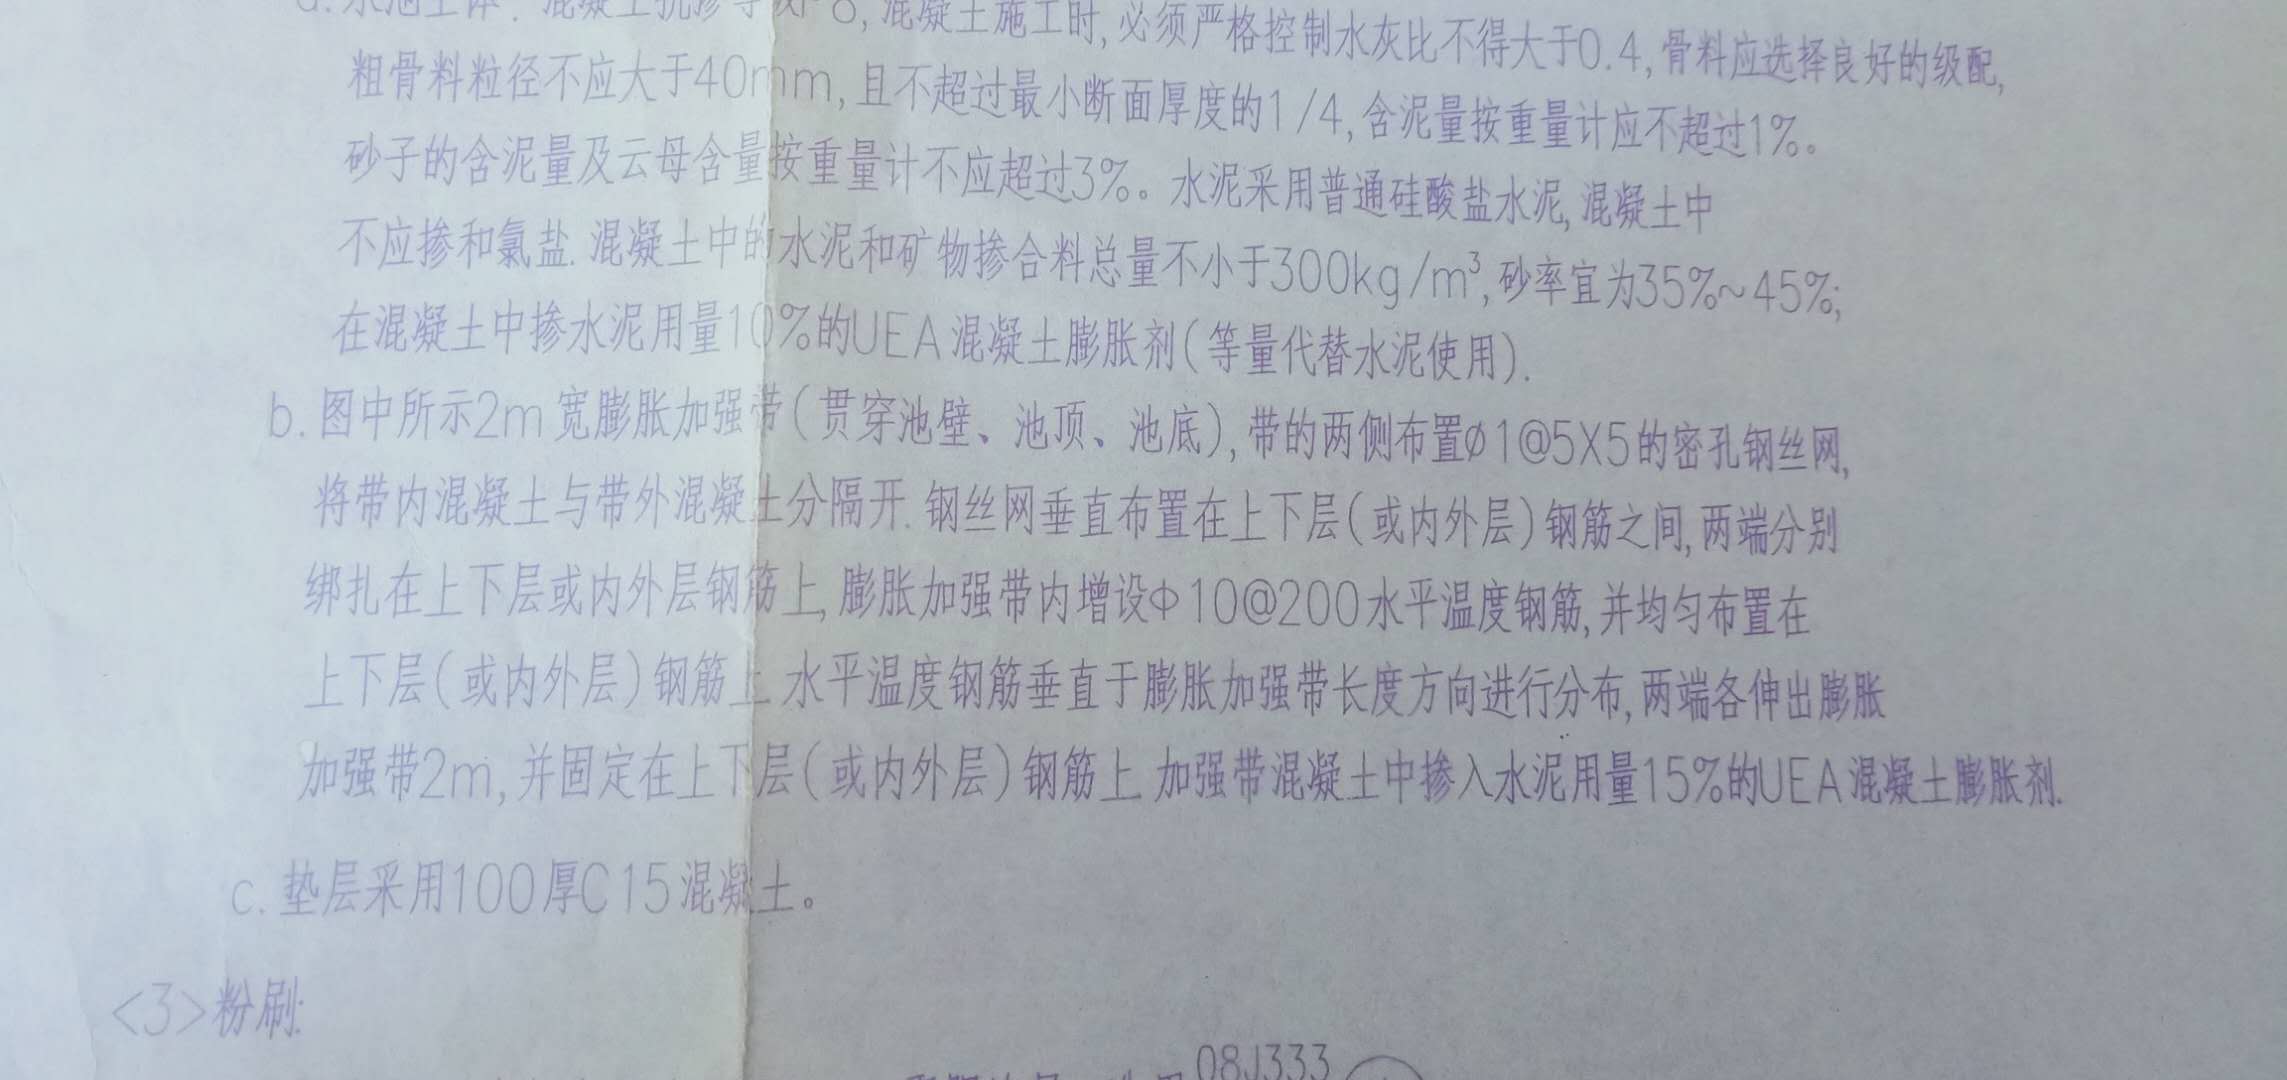 a.水池主体：混凝土抗渗等级P6,混凝土施工时,必须严格控制水灰比不得大于0.4,骨料应选择良好的级配,
粗骨料粒径不应大于40mm,且不超过最小断面厚度的1/4,含泥量按重量计应不超过1%。
砂子的含泥量及云母含量按重量计不应超过3%。水泥采用普通硅酸盐水泥,混凝土中
不应掺和氯盐.混凝土中的水泥和矿物掺合料总量不小于300kg/m³,砂率宜为35%~45%;
在混凝土中掺水泥用量10%的UEA混凝土膨胀剂(等量代替水泥使用).
b.图中所示2m宽膨胀加强带(贯穿池壁、池顶、池底),带的两侧布置ø1@5X5的密孔钢丝网,
将带内混凝土与带外混凝土分隔开.钢丝网垂直布置在上下层(或内外层)钢筋之间,两端分别
绑扎在上下层或内外层钢筋上,膨胀加强带内增设Φ10@200水平温度钢筋,并均匀布置在
上下层(或内外层)钢筋上.水平温度钢筋垂直于膨胀加强带长度方向进行分布,两端各伸出膨胀
加强带2m,并固定在上下层(或内外层)钢筋上.加强带混凝土中掺入水泥用量15%的UEA混凝土膨胀剂.
c.垫层采用100厚C15混凝土。
<3>粉刷:
08J333